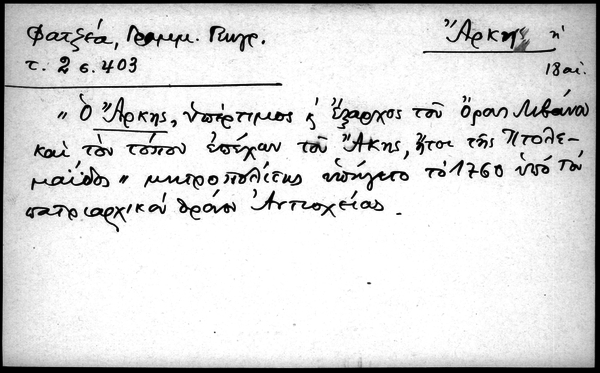 Φατζέα, Γραμμ. Γεωγρ.
Ἄρκης ἡ
τ. 2 σ. 403
18 αἰ.
" ὁ Ἄρκης, ὑπέρτιμος κ ἔξαρχος τοῦ Ὄρους Λιβάνου
καὶ τὸν τόπον ἐπέχων τοῦ Ἄκης, ἤτοι τῆς Πτολε-
μαΐδος " μητροπολίτης ὑπήγετο τὸ 1760 ὑπὸ τὸν
πατριαρχικὸν θρόνον Ἀντιοχείας.